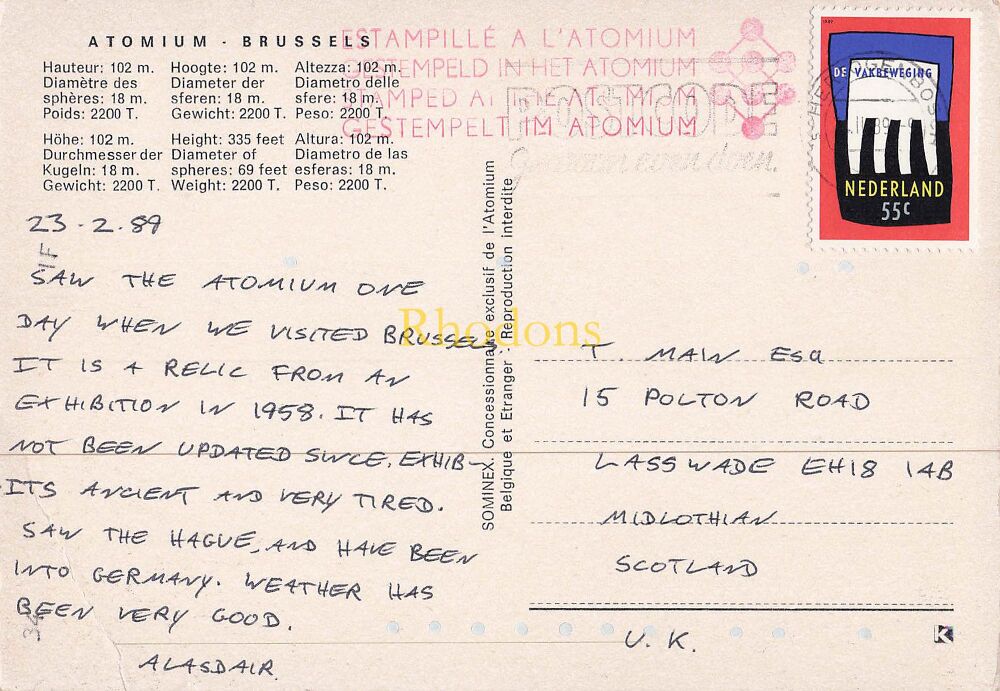 ATOMIUM - BRUSSELS
Hauteur: 102 m.
Diamètre des
sphères: 18 m.
Poids: 2200 T.
Hoogte: 102 m.
Diameter der
sferen: 18 m.
Gewicht: 2200 T.
Altezza: 102 m.
Diametro delle
sfere: 18 m.
Peso: 2200 T.
Höhe: 102 m.
Durchmesser der
Kugeln: 18 m.
Gewicht: 2200 T.
Height: 335 feet
Diameter of
spheres: 69 feet
Weight: 2200 T.
Altura: 102 m.
Diametro de las
esferas: 18 m.
Peso: 2200 T.
ESTAMPILLÉ A L'ATOMIUM
GESTEMPELD IN HET ATOMIUM
STAMPED AT THE ATOMIUM
GESTEMPELT IM ATOMIUM
POSTCODE
even doen.
1989
DE VAKBEWEGING
NEDERLAND
55c
'S-HERTOGENBOSCH
23-2.89
SAW THE ATOMIUM ONE
DAY WHEN WE VISITED BRUSSELS
IT IS A RELIC FROM AN
EXHIBITION IN 1958. IT HAS
NOT BEEN UPDATED SINCE. EXHIB-
ITS ANCIENT AND VERY TIRED.
SAW THE HAGUE, AND HAVE BEEN
INTO GERMANY. WEATHER HAS
BEEN VERY GOOD.
ALASDAIR
SOMINEX. Concessionnaire exclusif de l'Atomium
Belgique et Etranger - Reproduction interdite
Rhodons
T. MAIN ESQ
15 POLTON ROAD
LASSWADE EH18 1AB
MIDLOTHIAN
SCOTLAND
U.K.
K